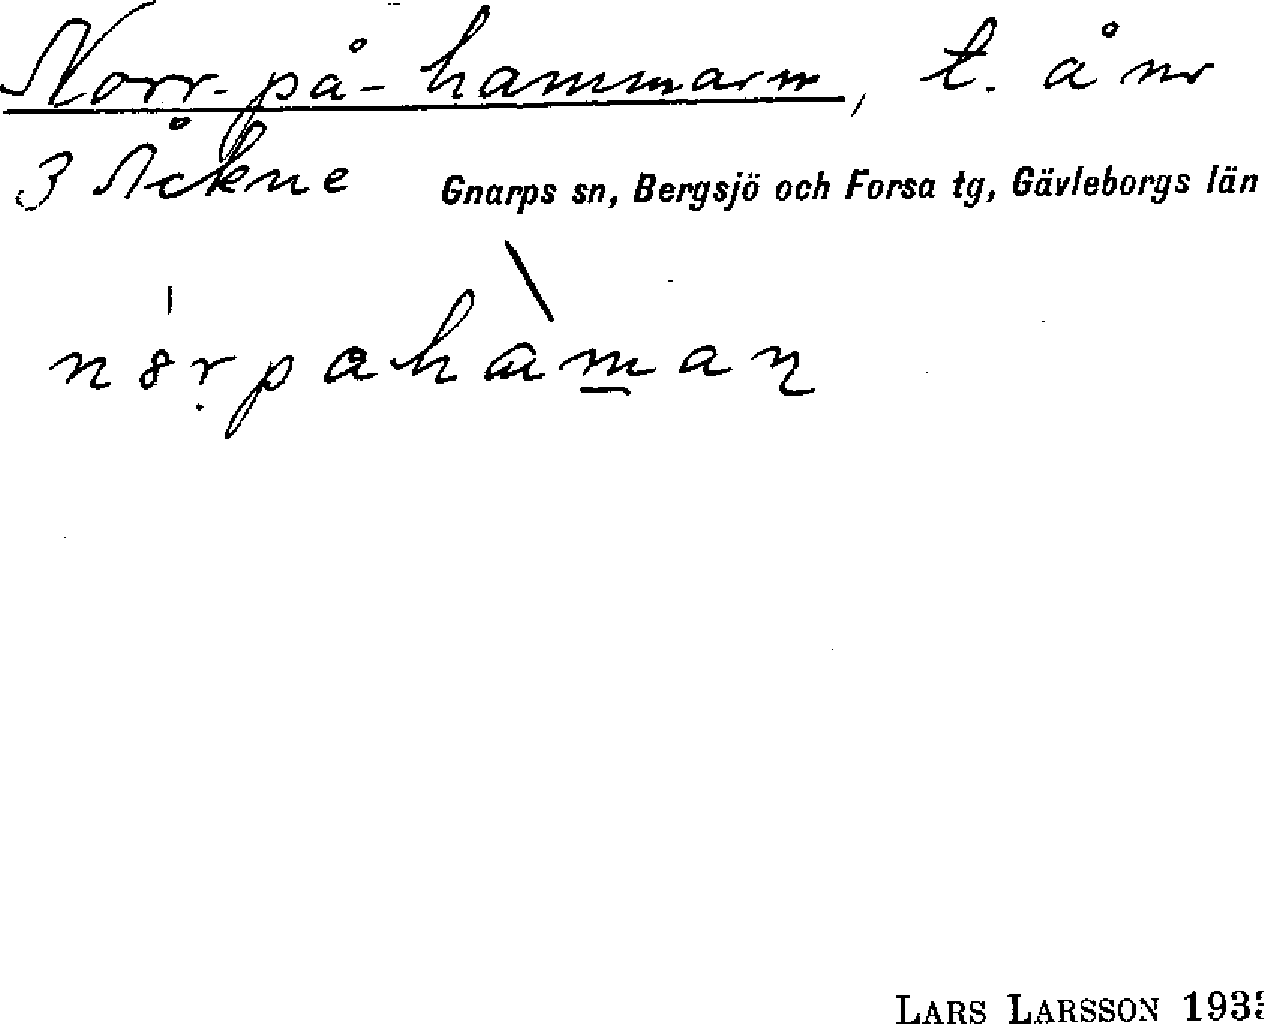 Norr-på-hammarn, t. å nr
3 Åckne
Gnarps sn, Bergsjö och Forsa tg, Gävleborgs län
LARS LARSSON